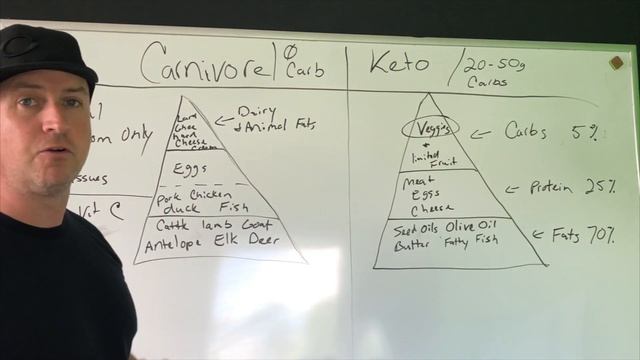 Carnivore/ Ø Carb
Keto / 20-50g Carbs
om Only
ssues
Vit C
Lard
Ghee
hard
Cheese
Cream
← Dairy
+ Animal Fats
Eggs
Pork Chicken
duck Fish
Cattle lamb Goat
Antelope Elk Deer
Veggies
+
limited
Fruit
← Carbs 5%
Meat
Eggs
Cheese
← Protein 25%
Seed Oils Olive Oil
Butter Fatty Fish
← Fats 70%